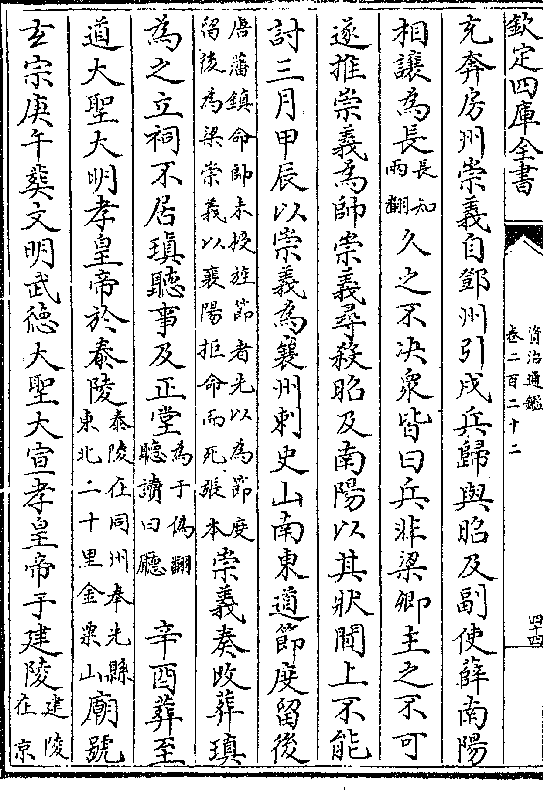 欽定四庫全書
資治通鑑
卷二百二十二
四十四
充奔房州崇義自鄧州引戍兵歸與昭及副使薛南陽
相讓為長長知兩翻久之不決衆皆曰兵非梁卿主之不可
遂推崇義為帥崇義尋殺昭及南陽以其狀聞上不能
討三月甲辰以崇義為襄州刺史山南東道節度留後
唐藩鎮命帥未授旌節者先以為節度留後為梁崇義以襄陽拒命而死張本崇義奏改葬瑱
為之立祠不居瑱聽事及正堂為于偽翻聽讀曰廳辛酉葬至
道大聖大明孝皇帝於泰陵泰陵在同州奉先縣東北二十里金粟山廟號
玄宗庚午葬文明武德大聖大宣孝皇帝于建陵建陵在京